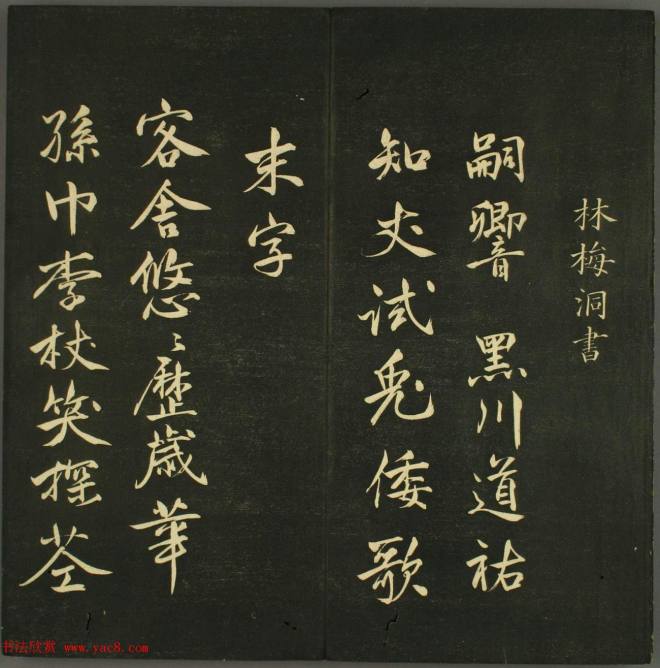 林梅洞書
嗣響 黒川道祐
知丈試兔倭歌
末字
客舎悠〻歴歳華
孫巾李杖笑探
书法欣赏 www.yac8.com